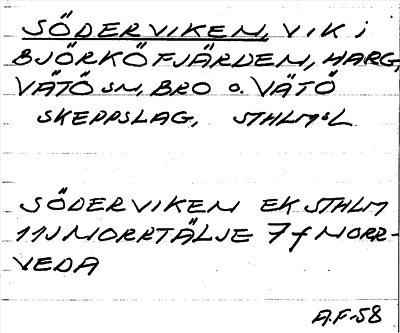 SÖDERVIKEN, VIK i
BJÖRKÖFJÄRDEN, HARG,
VÄTÖ SN, BRO o. VÄTÖ
SKEPPSLAG, STHLMSL
SÖDERVIKEN EK STHLM
11J NORRTÄLJE 7f NORR-
VEDA
A.F-58